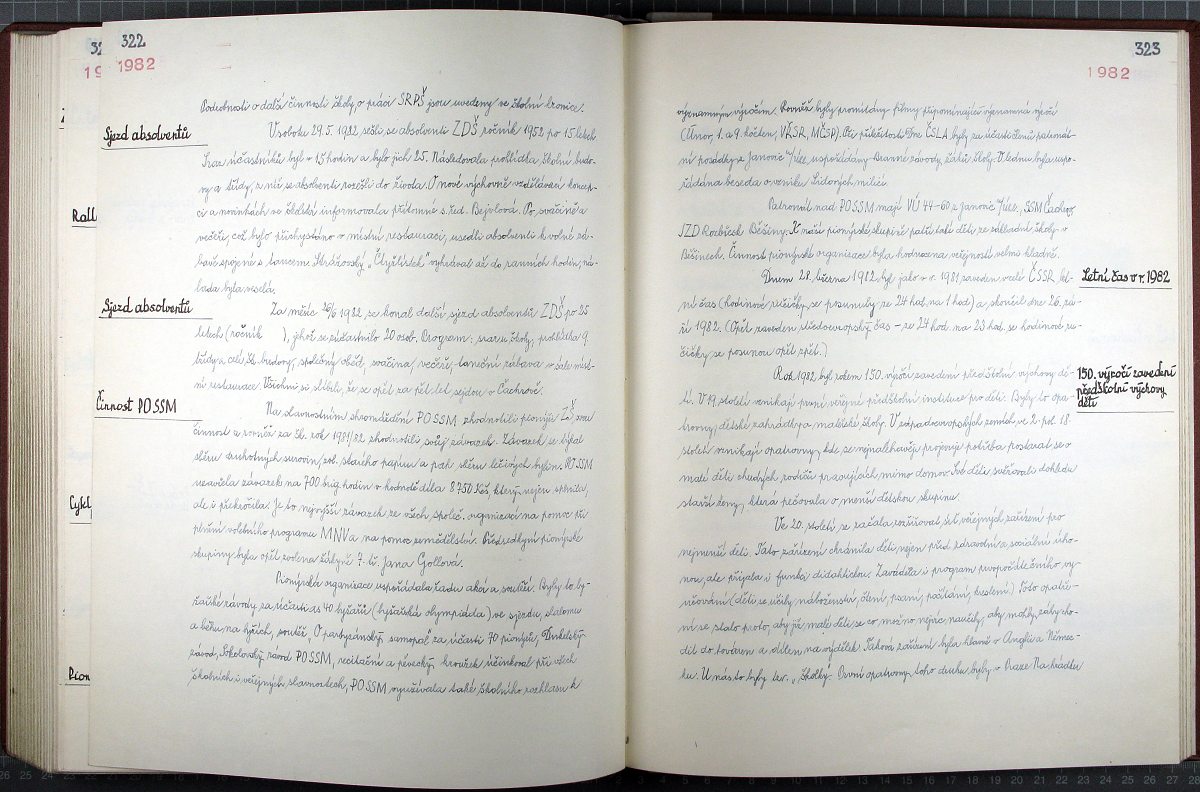 322
1982
Podrobnosti o další činnosti školy, o práci SRPŠ jsou uvedeny ve školní kronice.
Sjezd absolventů
V sobotu 29.5.1982 sešli se absolventi ZDŠ ročník 1952 po 15 letech
Sraz účastníků byl v 15 hodin a bylo jich 25. Následovala prohlídka školní budo-
vy a třídy, z níž se absolventi rozešli do života. O nové výchovně vzdělávací koncep-
ci a novinkách ve školství informovala přítomné s. řed. Bejvlová. Po svačině a
večeři, což bylo přichystáno v místní restauraci, usedli absolventi k volné zá-
bavě spojené s tancem. Strážovský "Čtyřlístek" vyhrával až do ranních hodin, ná-
lada byla veselá.
Sjezd absolventů
Za měsíc 26/6 1982 se konal další sjezd absolventů ZDŠ po 25
letech (ročník ), jehož se zúčastnilo 20 osob. Program: sraz u školy, prohlídka 9.
třídy a celé šk. budovy, společný oběd, svačina, večeře, taneční zábava v sále míst-
ní restaurace. Všichni si slíbili, že se opět za pět let sejdou v Čachrově.
Činnost POSSM
Na slavnostním shromáždění POSSM zhodnotili pionýři ZŠ svou
činnost a rovněž za šk. rok 1981/82 zhodnotili svůj závazek. Závazek se týkal
sběru druhotných surovin, zvl. starého papíru a pak sběru léčivých bylin. POSSM
uzavřela závazek na 700 brig. hodin v hodnotě díla 8750 Kčs, který nejen splnila,
ale i překročila. Je to nejvyšší závazek ze všech společ. organizací na pomoc při
plnění volebního programu MNV a na pomoc zemědělství. Předsedkyní pionýrské
skupiny byla opět zvolena žákyně 7. tř. Jana Gollová.
Pionýrská organizace uspořádala řadu akcí a soutěží. Byly to ly-
žařské závody za účasti as 40 lyžařů (lyžařská olympiáda) ve sjezdu, slalomu
a běhu na lyžích, soutěž "O partyzánský samopal" za účasti 70 pionýrů, Dukelský
závod, Sokolovský závod POSSM, recitační a pěvecký kroužek účinkoval při všech
školních i veřejných slavnostech, POSSM využívala také školního rozhlasu k
323
1982
významným výročím. Rovněž byly promítány filmy připomínající významná výročí
(Únor, 1. a 9. květen, VŘSR, MČSP). Při příležitosti Dne ČSLA byly za účasti členů patronát-
ní posádky z Janovic n/Úhl. uspořádány branné závody žáků školy. V lednu byla uspo-
řádána beseda o vzniku Lidových milicí.
Patronát nad POSSM mají VÚ 44-60 z Janovic n/Úhl., SSM Čachrov,
JZD Rozbřesk Běšiny. K naší pionýrské skupině patří také děti ze základní školy v
Běšinech. Činnost pionýrské organizace byla hodnocena veřejností velmi kladně.
Letní čas v r. 1982
Dnem 28. března 1982 byl jako v r. 1981 zaveden v celé ČSSR let-
ní čas (hodinové ručičky se posunuly ze 24 hod. na 1 hod) a skončil dne 26. zá-
ří 1982. (Opět zaveden středoevropský čas - ze 24 hod na 23 hod. se hodinové ru-
čičky se posunou opět zpět.)
150. výročí zavedení
předškolní výchovy
dětí
Rok 1982 byl rokem 150. výročí zavedení předškolní výchovy dě-
tí. V 19. století vznikají první veřejné předškolní instituce pro děti. Byly to opa-
trovny, dětské zahrádky a mateřské školy. V západoevropských zemích ve 2. pol. 18.
století vznikají opatrovny, kde se nejnaléhavěji projevuje potřeba postarat se o
malé děti chudých rodičů pracujících mimo domov. Své děti svěřovali dohledu
starší ženy, která pečovala o menší dětskou skupinu.
Ve 20. století se začala rozšiřovat síť veřejných zařízení pro
nejmenší děti. Tato zařízení chránila děti nejen před zdravotní a sociální úho-
nou, ale přijala i funkci didaktickou. Zaváděla i program prvopočátečního vy-
učování (děti se učily náboženství, čtení, psaní, počítání, kreslení.) Toto opatře-
ní se stalo proto, aby již malé děti se co možno nejvíce naučily, aby mohly záhy cho-
dit do továren a dílen na výdělek. Taková zařízení byla hlavně v Anglii a Němec-
ku. U nás to byly tzv. "školky". První opatrovny toho druhu byly v Praze Na hrádku